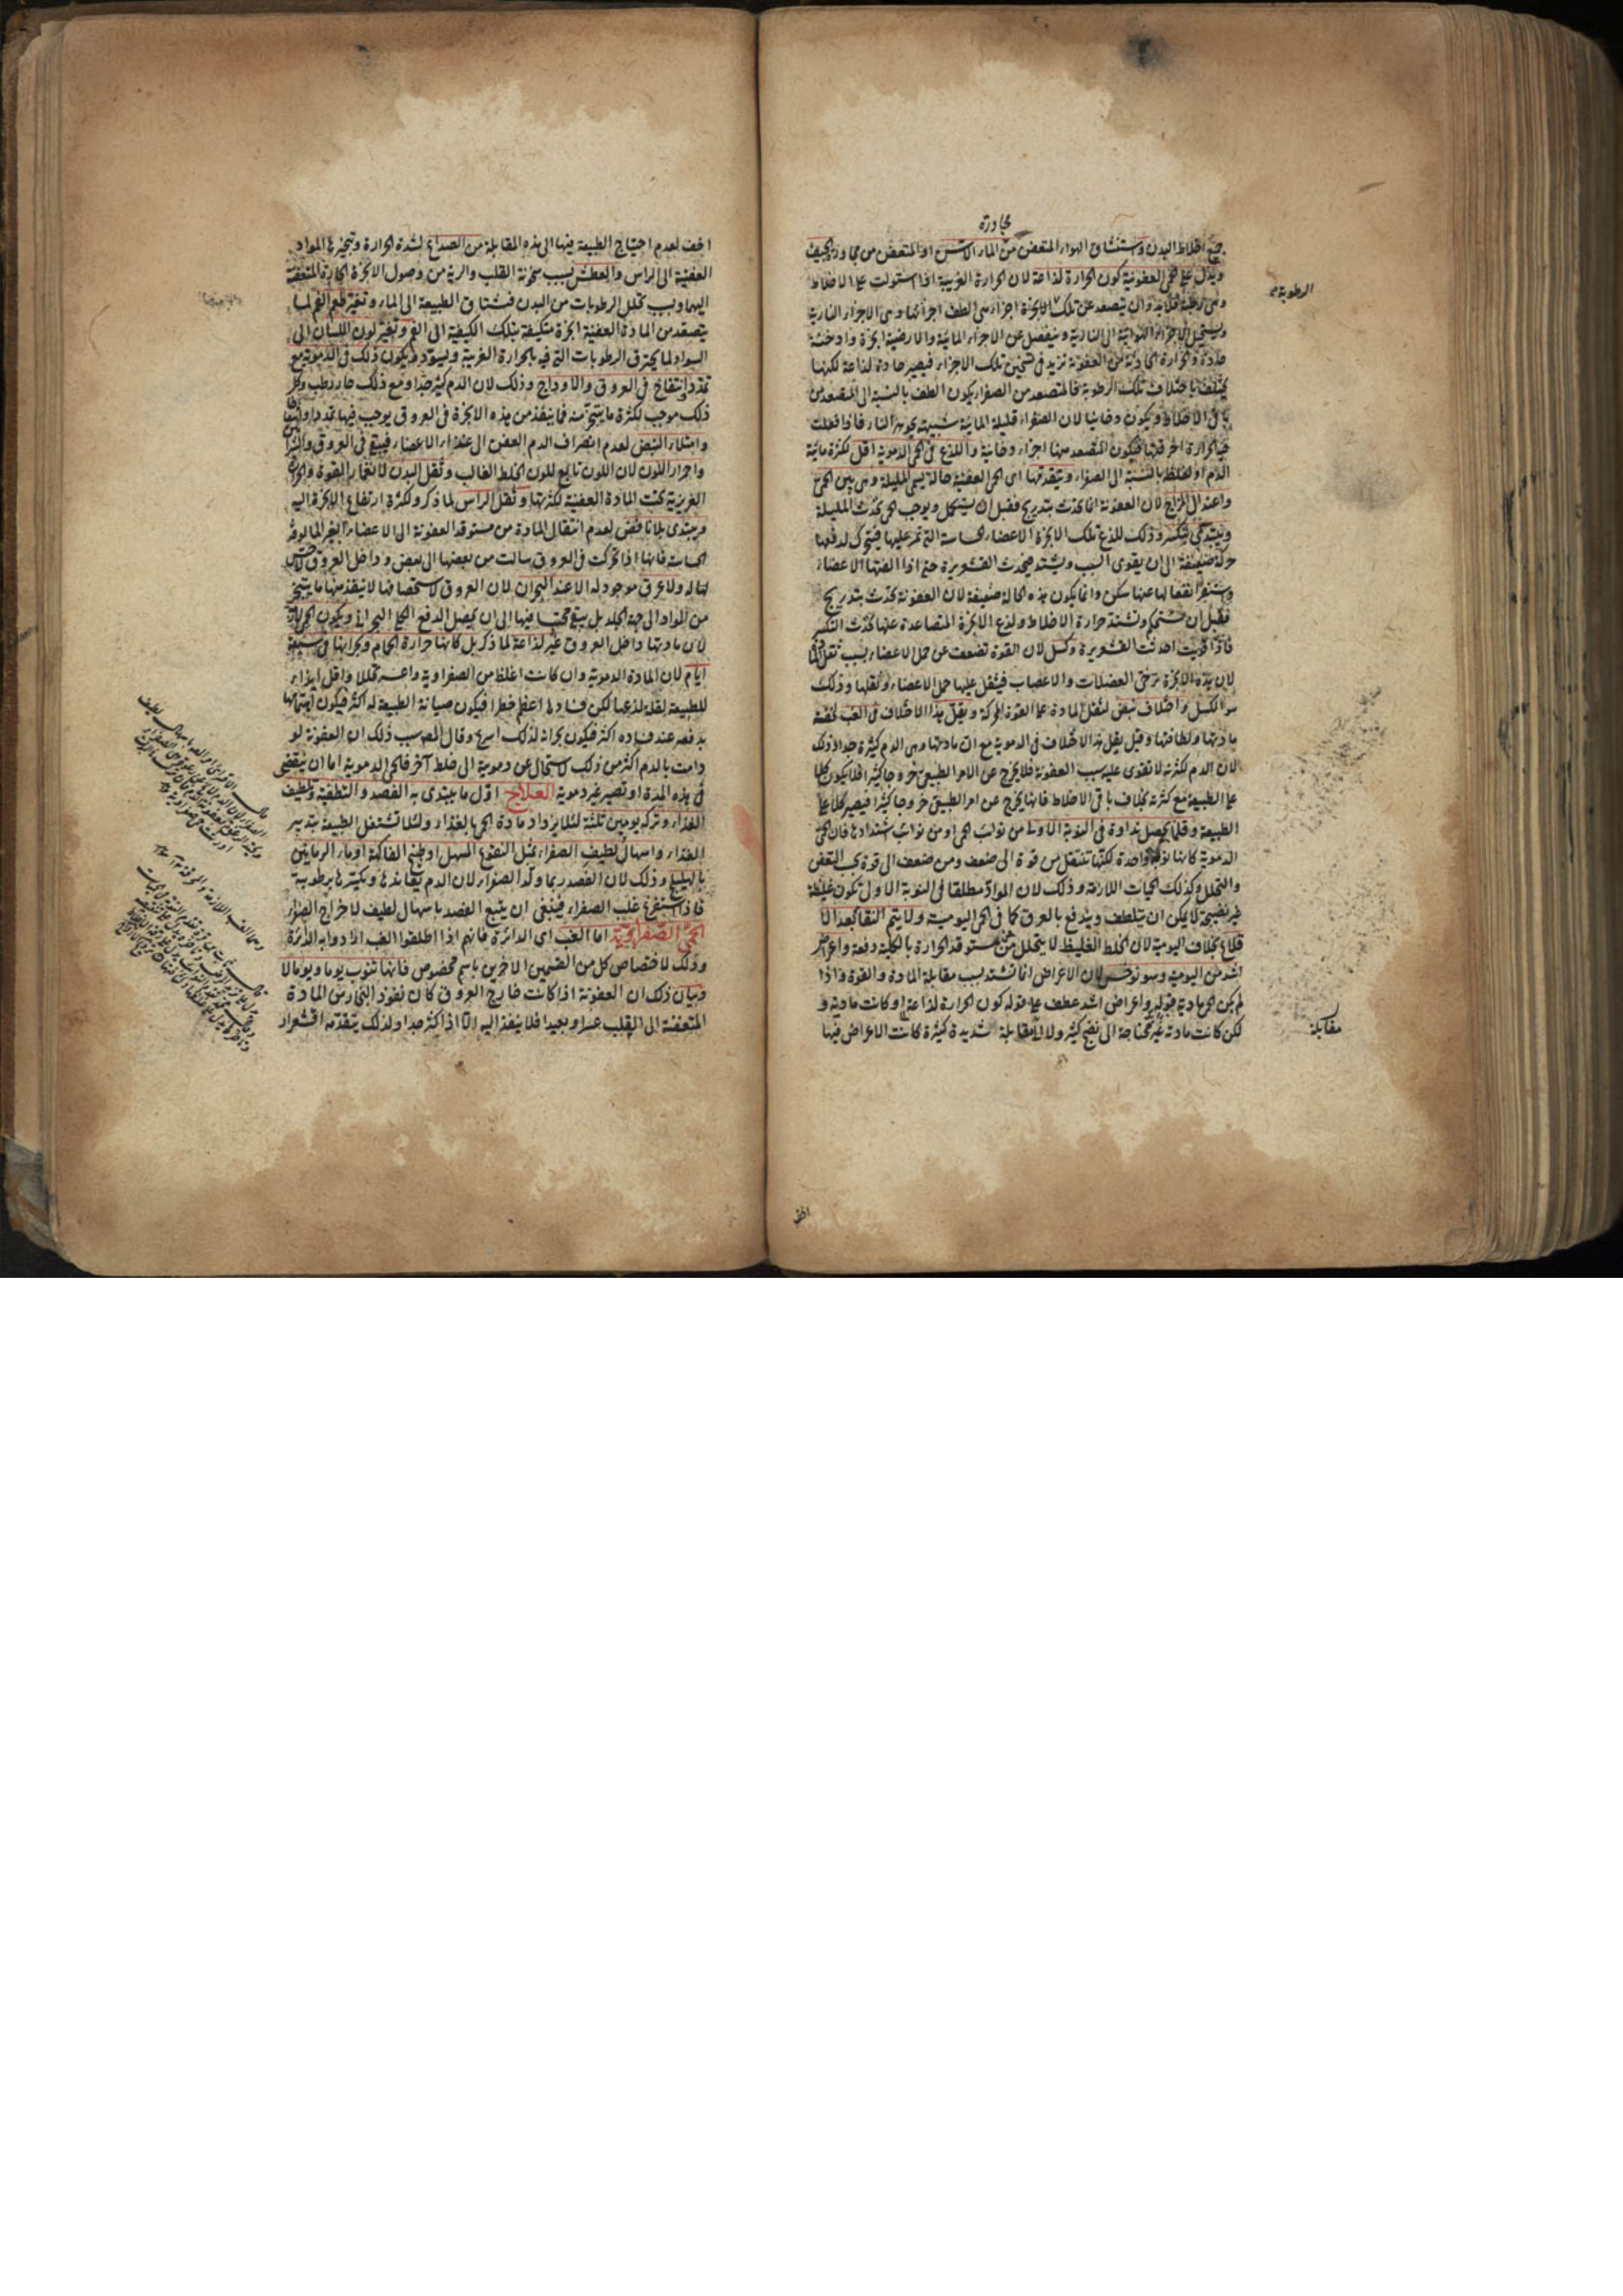 مجاورة
جميع اخلاط البدن وستنشاق الهواء المتعفن من الماء الآسن او المتعفن من مجاورة الجيف
ويدل على الحمى العفونية كون الحرارة لذاعة لان الحرارة الغريبة اذا استولت على الاخلاط
وهى رطبة فلا بد وان يتصعد عن تلك الابخرة اجزاء هى الطف اجزائها وهى الاجزاء النارية
ويستحيل الاجزاء الهوائية الى النارية وينفصل عن الاجزاء المائية والارضية ابخرة وادخنة
حادة والحرارة الحادثة من العفونة تزيد فى تسخين تلك الاجزاء فيصير حادة لذاعة لكنها
يختلف باختلاف تلك الرطوبة فالمتصعد من الصفراء يكون الطف بالنسبة الى المتصعد من
باقى الاخلاط ويكون دخانيا لان الصفراء قليلة المائية شبيهة بجوهر النار فاذا فعلت
فيها الحرارة احرقتها فيكون المتصعد منها اجزاء دخانية واللذع فى الحمى الدموية اقل لكثرة مائية
الدم او لغلظه بالنسبة الى الصفراء ويتقدمها اى الحمى العفنية حالة يسمى المليلة وهى بين الحمى
واعتدال المزاج لان العفونة انما تحدث بتدريج فقبل ان يستكمل ويوجب الحمى تحدث المليلة
ويبتدئ بتكسر وذلك للذع تلك الابخرة الاعضاء الحساسة التى تمر عليها فيتحرك لدفعها
حركة ضعيفة الى ان يقوى السبب ويشتد فيحدث القشعريرة حتى اذا الفتها الاعضاء
واستقر انفعالها عنها سكن وانما يكون هذه الحالة ضعيفة لان العفونة تحدث بتدريج
فقبل ان تستحكم وتشتد حرارة الاخلاط ولذع الابخرة المتصاعدة عنها تحدث التكسر
فاذا قويت احدثت القشعريرة وكسل لان القوة تضعف عن حمل الاعضاء بسبب ثقل
لان هذه الابخرة ترخى العضلات والاعصاب فيثقل عليها حمل الاعضاء ونقلها وذلك
هو الكسل واختلاف نبض لثقل المادة على القوة المحركة ويقل هذا الاختلاف فى الغب لخفة
مادتها ولطافتها وقيل يقل هذا الاختلاف فى الدموية مع ان مادتها وهى الدم كثيرة جدا وذلك
لان الدم لكثرته لا تقوى عليه سبب العفونة فلا يخرج عن الامر الطبيعى خروجا كثيرا فلا يكون كلا
على الطبيعة مع كثرته بخلاف باقى الاخلاط فانها يخرج عن امر الطبيعى خروجا كثيرا فيصير كلا على
الطبيعة وقلما يحصل نداوة فى النوبة الاولى من نوائب الحمى او من نوائب اشتدادها فان الحمى
الدموية كانها نوبة واحدة لكنها تنتقل من قوة الى ضعف ومن ضعف الى قوة بحسب التعفن
والتحلل وكذلك الحميات اللازمة وذلك لان المواد مطلقا فى النوبة الاولى تكون غليظة
غير نضيجة لا يمكن ان يتلطف ويندفع بالعرق كما فى الحمى اليومية ولا يتم النقا بعد الا
قلاع بخلاف اليومية لان الخلط الغليظ لا يتحلل من مستوقد الحرارة بالكلية دفعة واعراض
اشد من اليومية وسونوخس لان الاعراض انما تشتد بسبب مقابلة المادة والقوة واذا
لم يكن الحمى مادية قوله واعراض اشد عطف على قوله كون الحرارة لذاعة او كانت مادية و
لكن كانت مادته غير محتاجة الى نضج كثير ولا الى مقابلة شديدة كثيرة كانت الاعراض فيها
الرطوبة
مقابلة
اخف
اخف لعدم احتياج الطبيعة فيها الى هذه المقابلة من الصداع لشدة الحرارة وتبخيرها المواد
العفنية الى الراس والعطش بسبب سخونة القلب والرية من وصول الابخرة الحارة المتعفنة
اليهما وبسبب تحلل الرطوبات من البدن فيشتاق الطبيعة الى الماء وتغير طعم الفم لما
يتصعد من المادة العفنية ابخرة متكيفة بتلك الكيفية الى الفم وتغير لون اللسان الى
السواد لما يحترق الرطوبات التى فيه بالحرارة الغريبة ويسود ويكون ذلك فى الدموية مع
تمدد وانتفاخ فى العروق والاوداج وذلك لان الدم كثير جدا ومع ذلك حار رطب وكل
ذلك موجب لكثرة ما يتبخر منه فما ينفذ من هذه الابخرة فى العروق يوجب فيها تمددا وانتفاخا
وامتلاء النبض لعدم انصراف الدم العفن الى غذاء الاعضاء فيبقى فى العروق والشرائين
واحمرار اللون لان اللون تابع للون الخلط الغالب وثقل البدن لانغمار القوة والحرارة
الغريزية تحت المادة العفنية لكثرتها وثقل الراس لما ذكر ولكثرة ارتفاع الابخرة اليه
ويبتدى بلا نافض لعدم انتقال المادة من مستوقد العفونة الى الاعضاء الغير المالوفة
الحساسة فانها اذا تحركت فى العروق سالت من بعضها الى بعض وداخل العروق لا حس
لها له ولا عرق موجود له الا عند البحران لان العروق لاستحصافها لا ينفذ منها ما يتبخر
من المواد الى جهة الجلد بل يبقى محتبسا فيها الى ان يحصل الدفع البحرانى ويكون الحمى
لان مادتها داخل العروق غير لذاعة لما ذكر بل كانها حرارة الحمام وبحرانها فى سبعة
ايام لان المادة الدموية وان كانت اغلظ من الصفراوية واعسر تحللا واقل ايذاء
للطبيعة لقلة لذعها لكن فسادها اعظم خطرا فيكون صيانة الطبيعة له اكثر فيكون اهتمامها
بدفعه عند فساده اكثر فيكون بحرانه لذلك اسرع وقال المص سبب ذلك ان العفونة لو
دامت بالدم اكثر من ذلك لاستحال عن دموية الى خلط آخر فالحمى الدموية اما ان ينقضى
فى هذه المدة او تصير غير دموية العلاج اول ما يبتدى به الفصد والتطفية وتلطيف
الغذاء وتركه يومين ثلثة لئلا يزداد مادة الحمى بالغذاء ولئلا تشتغل الطبيعة بتدبير
الغذاء واسهال لطيف الصفراء بمثل النقوع المسهل او طبخ الفاكهة او ماء الرمانين
بالهليلج وذلك لان الفصد ربما ولد الصفراء لان الدم يعاندها ويكسرها برطوبته
فاذا استفرغ غلب الصفراء فينبغى ان يتبع الفصد باسهال لطيف لاخراج الصفراء
الحمى الصفراوية اما الغب اى الدائرة فانهم اذا اطلقوا الغب ارادوا به الدائرة
وذلك لاختصاص كل من القسمين الآخرين باسم مخصوص فانها تنوب يوما ويوما لا
وبيان ذلك ان العفونة اذا كانت خارج العروق كان نفوذ البخار من المادة
المتعفنة الى القلب عسرا وبعيدا فلا ينفذ اليه الا اذا كثر جدا ولذلك يتقدمه اقشعرار